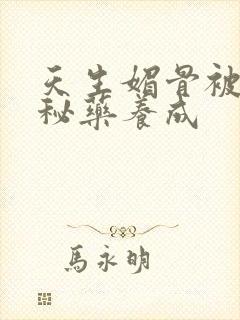 天生媚骨被
秘藥養成
馬永明